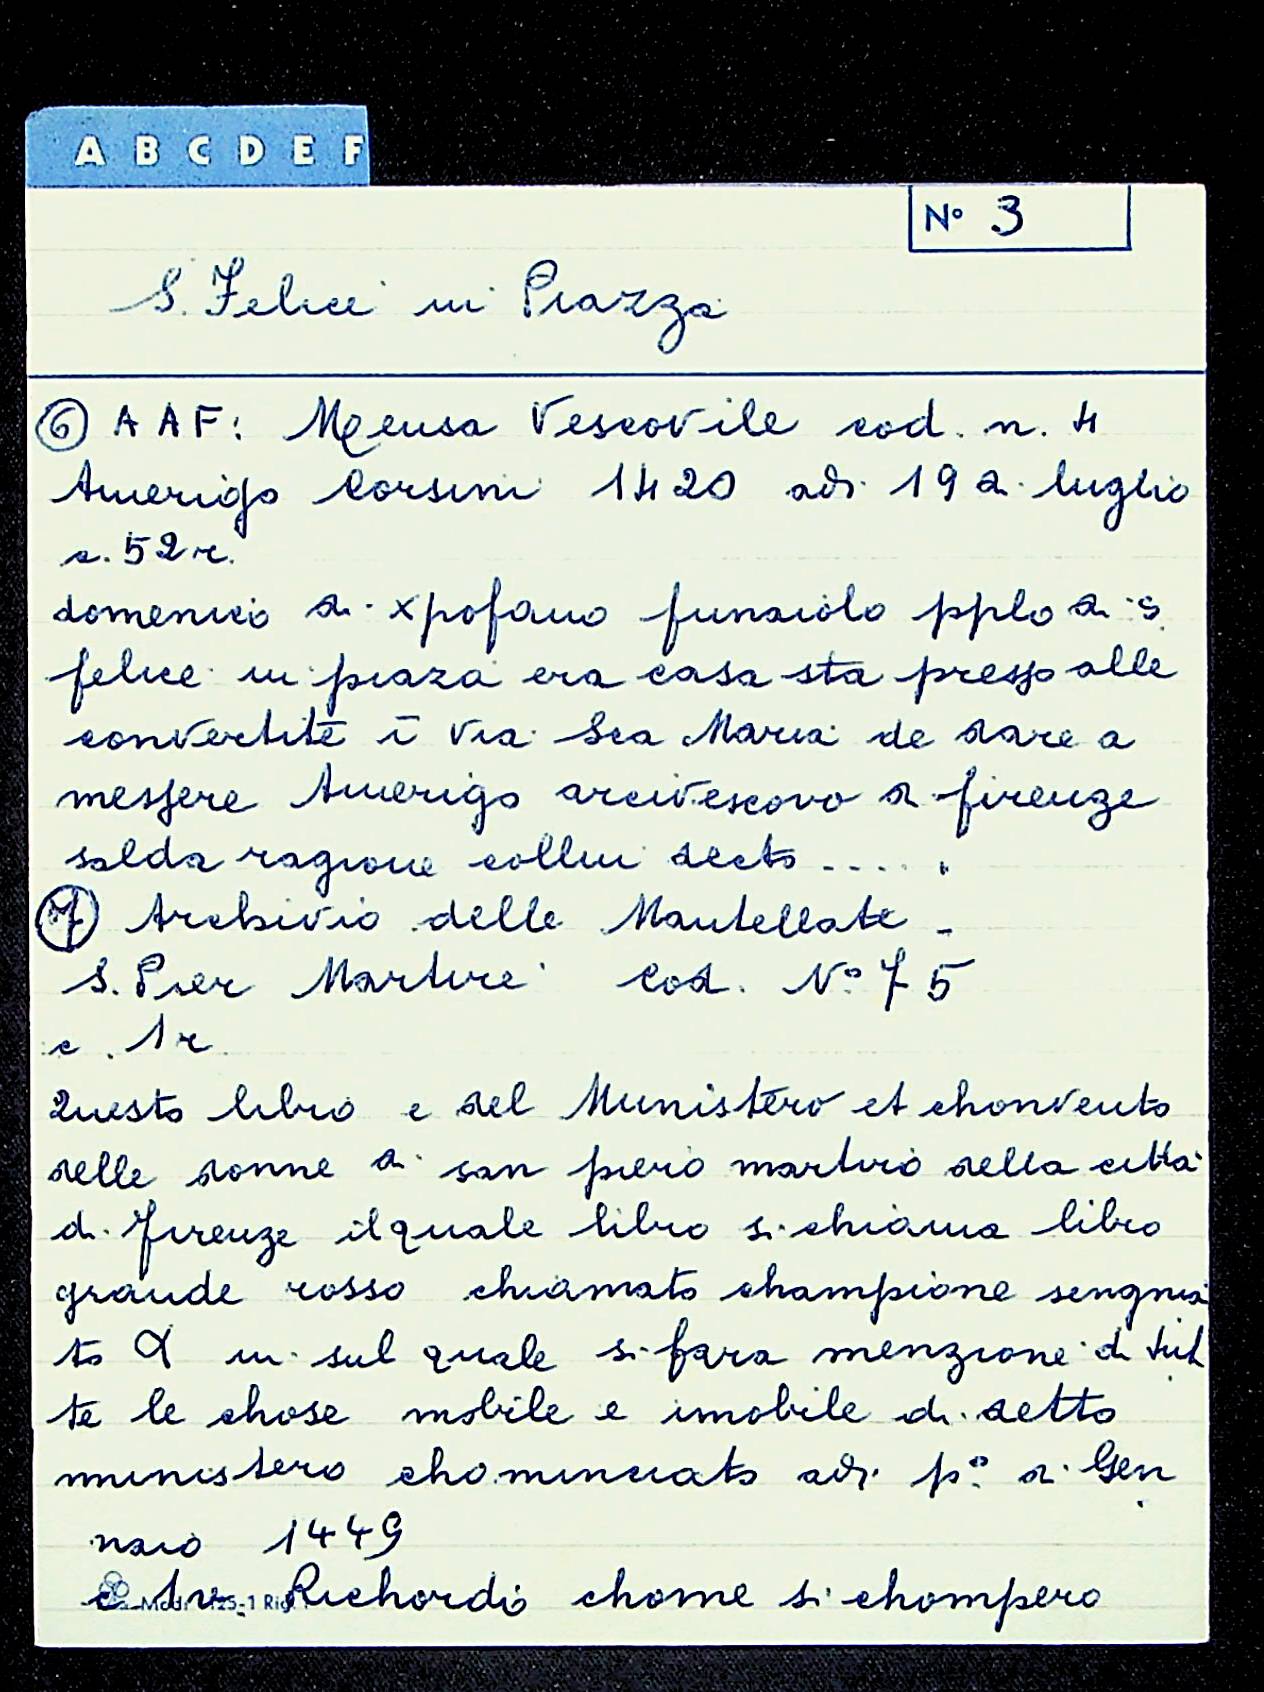 A B C D E F
N° 3
S. Felice in Piazza
⑥ A A F: Mensa Vescovile cod. n. 4
Amerigo Corsini 1420 adi 19 di luglio
c. 52 r.
domenico di xpofano funaiolo pplo di s.
felice in piaza era casa sta presso alle
convertite ī via Sca Maria de dare a
messere Amerigo arcivescovo di firenze
salda ragione collui decto .....
⑦ Archivio delle Mantellate -
S. Pier Martire Cod. N° 75
c. 1r
Questo libro e del Munistero et chonvento
delle donne di san piero martiro della citta
di Firenze ilquale libro si chiama libro
grande rosso chiamato champione sengnia
to α in sul quale si fara menzione di tut
te le chose mobile e imobile di detto
munistero chominciato adi p° di Gen
naio 1449
c 1v. Richordio chome si chompero